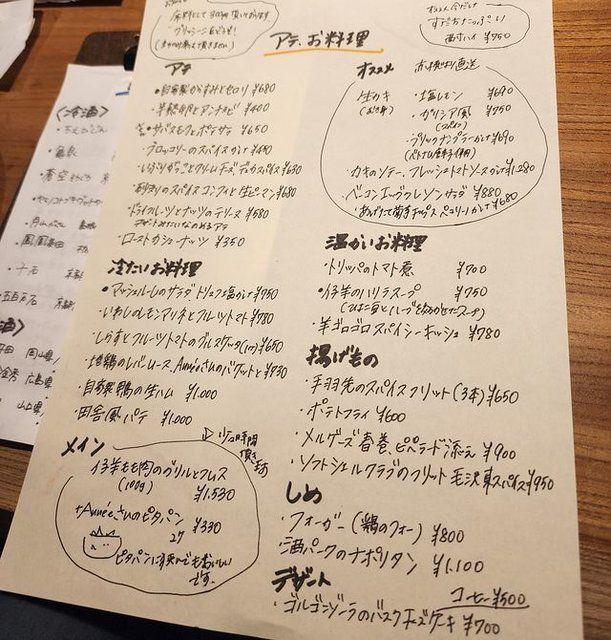 お料理として300円頂いております
アテ、お料理
すだちたっぷり
酎ハイ ¥750
アテ
・自家製からすみとセロリ ¥680
・半熟卵とアンチョビ ¥400
・サバスモークとポテサラ ¥650
・ブロッコリーのスパイスかけ ¥450
・いぶりがっことクリームチーズ、デュカスパイス ¥630
・砂ぎものスパイスコンフィと生ピーマン ¥680
・ドライフルーツとナッツのテリーヌ ¥580
・ローストカシューナッツ ¥350
オススメ
生カキ
・塩レモン ¥690
・ガリシア風 ¥750
(スパイン)
・ブリックナンプラーかけ ¥690
・カキのソテー、フレッシュトマトソースかけ ¥1,280
・ベーコンエッグクレソンサラダ ¥880
・あげたて菊芋チップス ペコリーノかけ ¥680
冷たいお料理
・マッシュルームのサラダ トリュフ塩かけ ¥950
・いわしのレモンマリネとフルーツトマト ¥780
・しらすとフルーツトマトのブルスケッタ(1コ) ¥650
・地鶏のレバームース、Annéeさんのバゲットと ¥750
・自家製鴨の生ハム ¥1,000
・田舎風パテ ¥1,000
温かいお料理
・トリッパのトマト煮 ¥700
・仔羊のハリラスープ ¥750
(ひよこ豆とハーブを効かせたスープ)
・羊ゴロゴロスパイシーキッシュ ¥780
揚げもの
・手羽先のスパイスフリット(3本) ¥650
・ポテトフライ ¥600
・メルゲーズ春巻、ピペラード添え ¥900
・ソフトシェルクラブのフリット 毛沢東スパイス ¥950
メイン
仔羊もも肉のグリルとクレス
(100g) ¥1,530
+Annéeさんのピタパン
2ケ ¥330
ピタパンに挟んでもおいしい
です。
しめ
・フォーガー(鶏のフォー) ¥800
・酒パークのナポリタン ¥1,100
デザート
コーヒー ¥500
・ゴルゴンゾーラのバスクチーズケーキ ¥700
〈冷酒〉